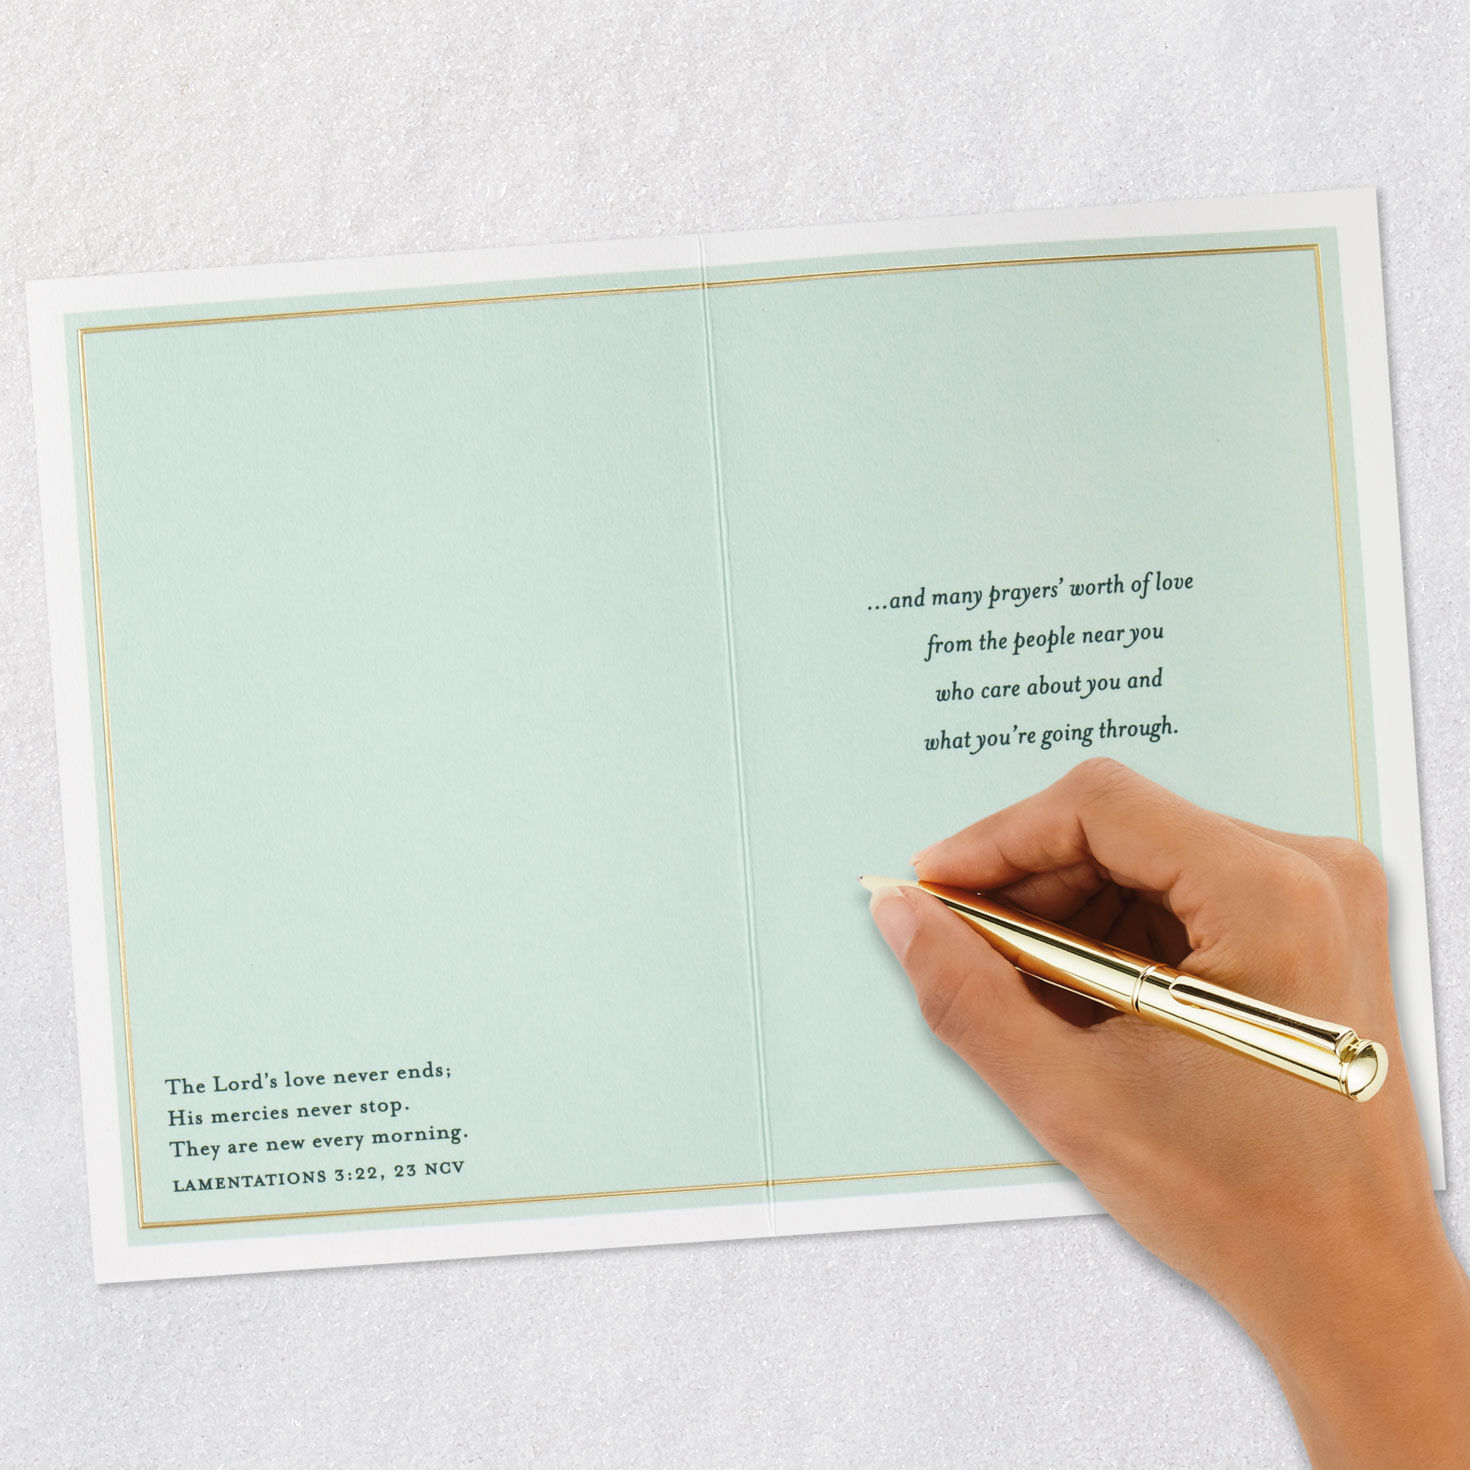 The Lord's love never ends;
His mercies never stop.
They are new every morning.
LAMENTATIONS 3:22, 23 NCV
...and many prayers' worth of love
from the people near you
who care about you and
what you're going through.